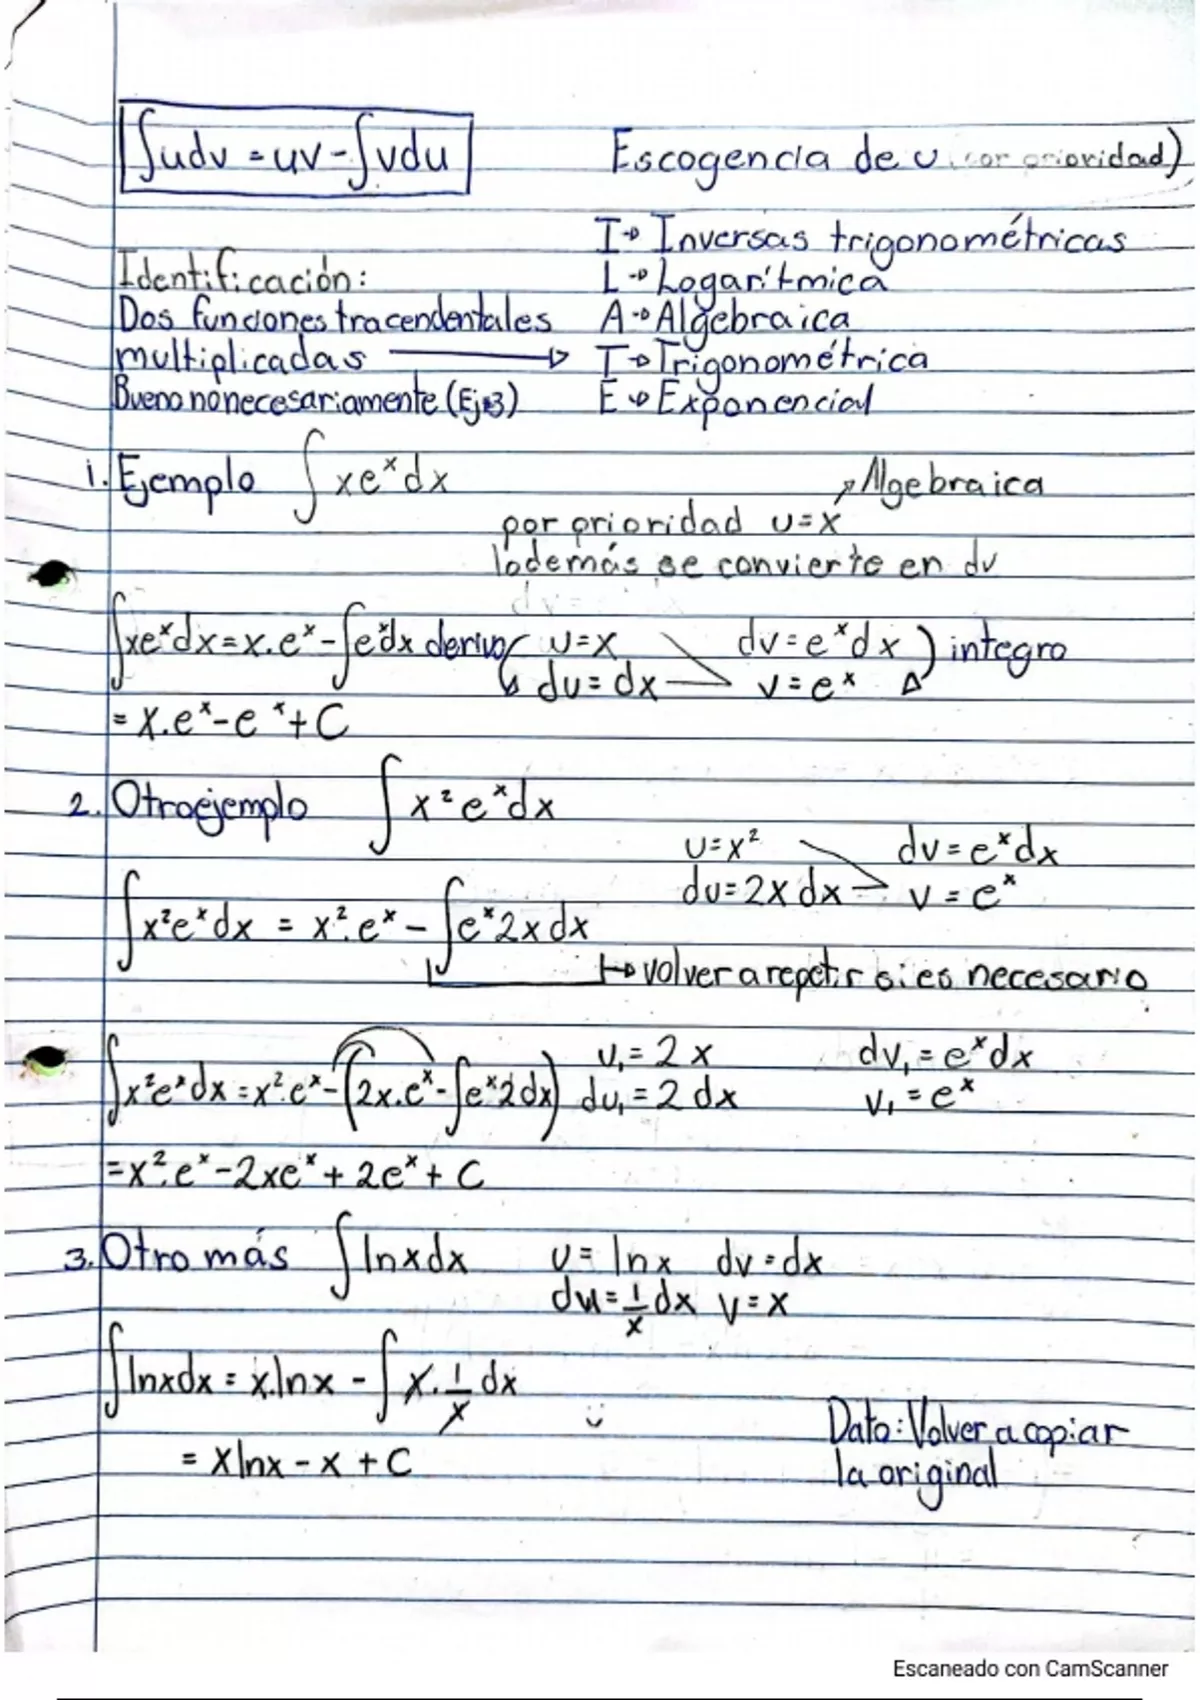 ∫udv = uv - ∫vdu
Escogencia de u (por prioridad)
I→ Inversas trigonométricas
L→ Logarítmica
A→ Algebraica
T→ Trigonométrica
E→ Exponencial
Identificación:
Dos funciones tracendentales
multiplicadas →
Bueno no necesariamente (Ej 3)
1. Ejemplo ∫xeˣdx
→ Algebraica
por prioridad u=x
lo demás se convierte en dv
∫xeˣdx = x.eˣ - ∫eˣdx derivo u=x dv=eˣdx ) integro
du=dx v=eˣ
= x.eˣ - eˣ + C
2. Otro ejemplo ∫x²eˣdx
u=x² dv=eˣdx
du=2xdx v=eˣ
∫x²eˣdx = x².eˣ - ∫eˣ2xdx
↦ volver a repetir si es necesario
∫x²eˣdx = x².eˣ - (2x.eˣ - ∫eˣ2dx) u₁=2x dv₁=eˣdx
du₁=2dx v₁=eˣ
= x².eˣ - 2xeˣ + 2eˣ + C
3. Otro más ∫lnxdx u=lnx dv=dx
du=1/x dx v=x
∫lnxdx = x.lnx - ∫x.1/x dx
= xlnx - x + C
Dato: Volver a copiar
la original
Escaneado con CamScanner